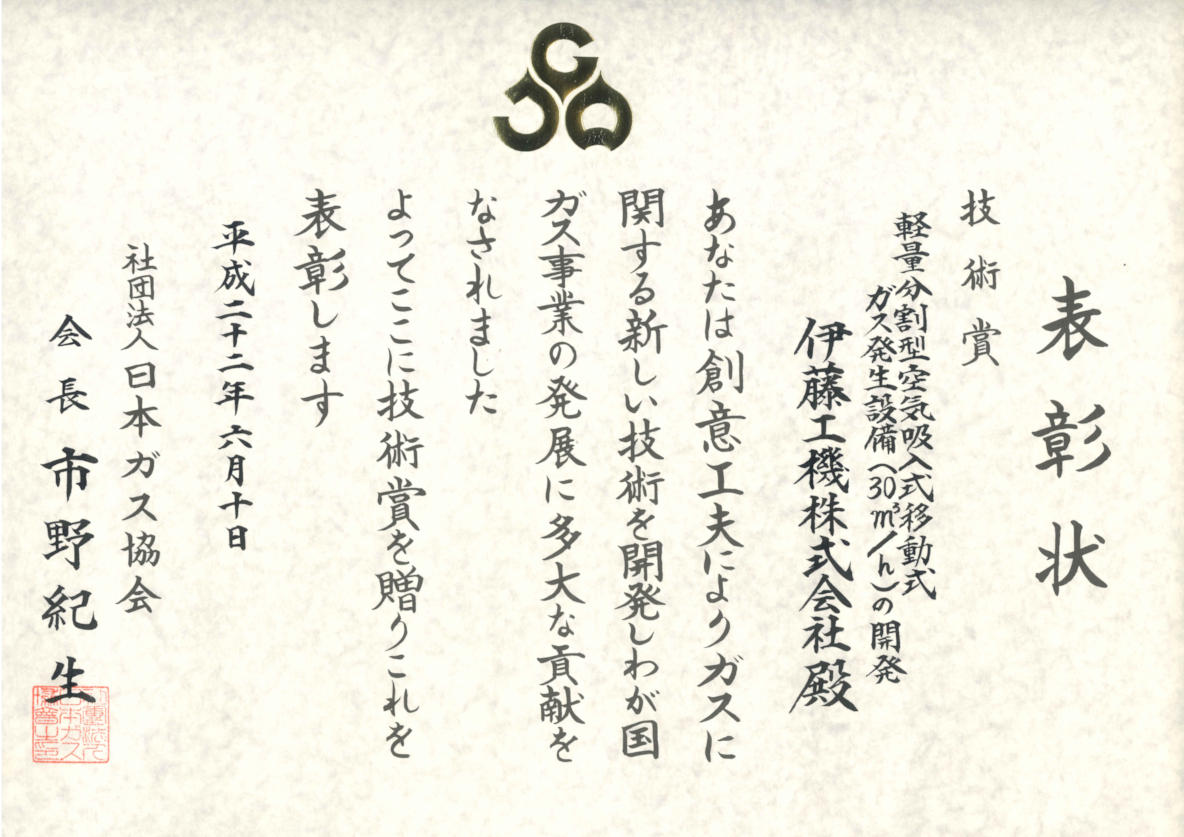 表彰状
技術賞
軽量分割型空気吸入式移動式
ガス発生設備(30m³/h)の開発
伊藤工機株式会社殿
あなたは創意工夫によりガスに
関する新しい技術を開発しわが国
ガス事業の発展に多大な貢献を
なされました
よってここに技術賞を贈りこれを
表彰します
平成二十二年六月十日
社団法人日本ガス協会
会長市野紀生
JGA